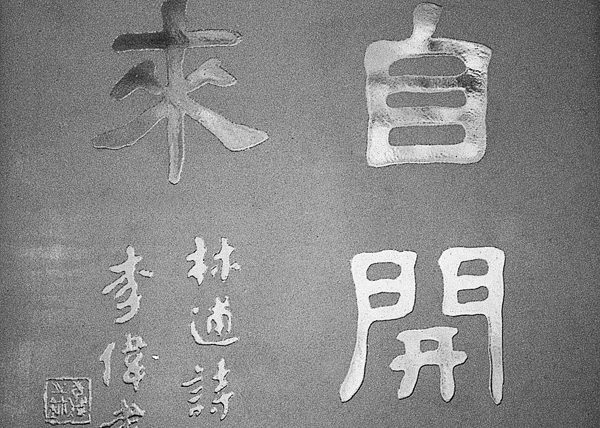 自開
來
林逋詩
李偉